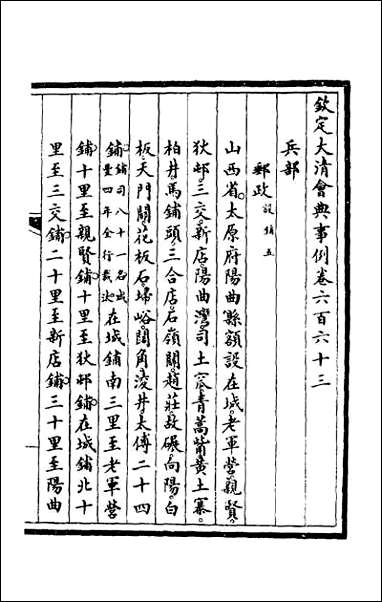 欽定大清會典事例卷六百六十三
兵部
郵政設鋪五
山西省太原府陽曲縣額設在城。老軍營。親賢。
狄邨。三交。新店。陽曲灣。司土窊。青蒿觜。黃土寨。
柏井。馬鋪頭。三合店。石嶺關。趙莊。故碾。向陽。白
板。天門關。花板石。埽峪。閣角。淩井。太傅二十四
鋪。鋪司八十一名。咸豐四年全行裁汰。在城鋪南三里至老軍營
鋪。十里至親賢鋪。十里至狄邨鋪。在城鋪北十
里至三交鋪。二十里至新店鋪。三十里至陽曲